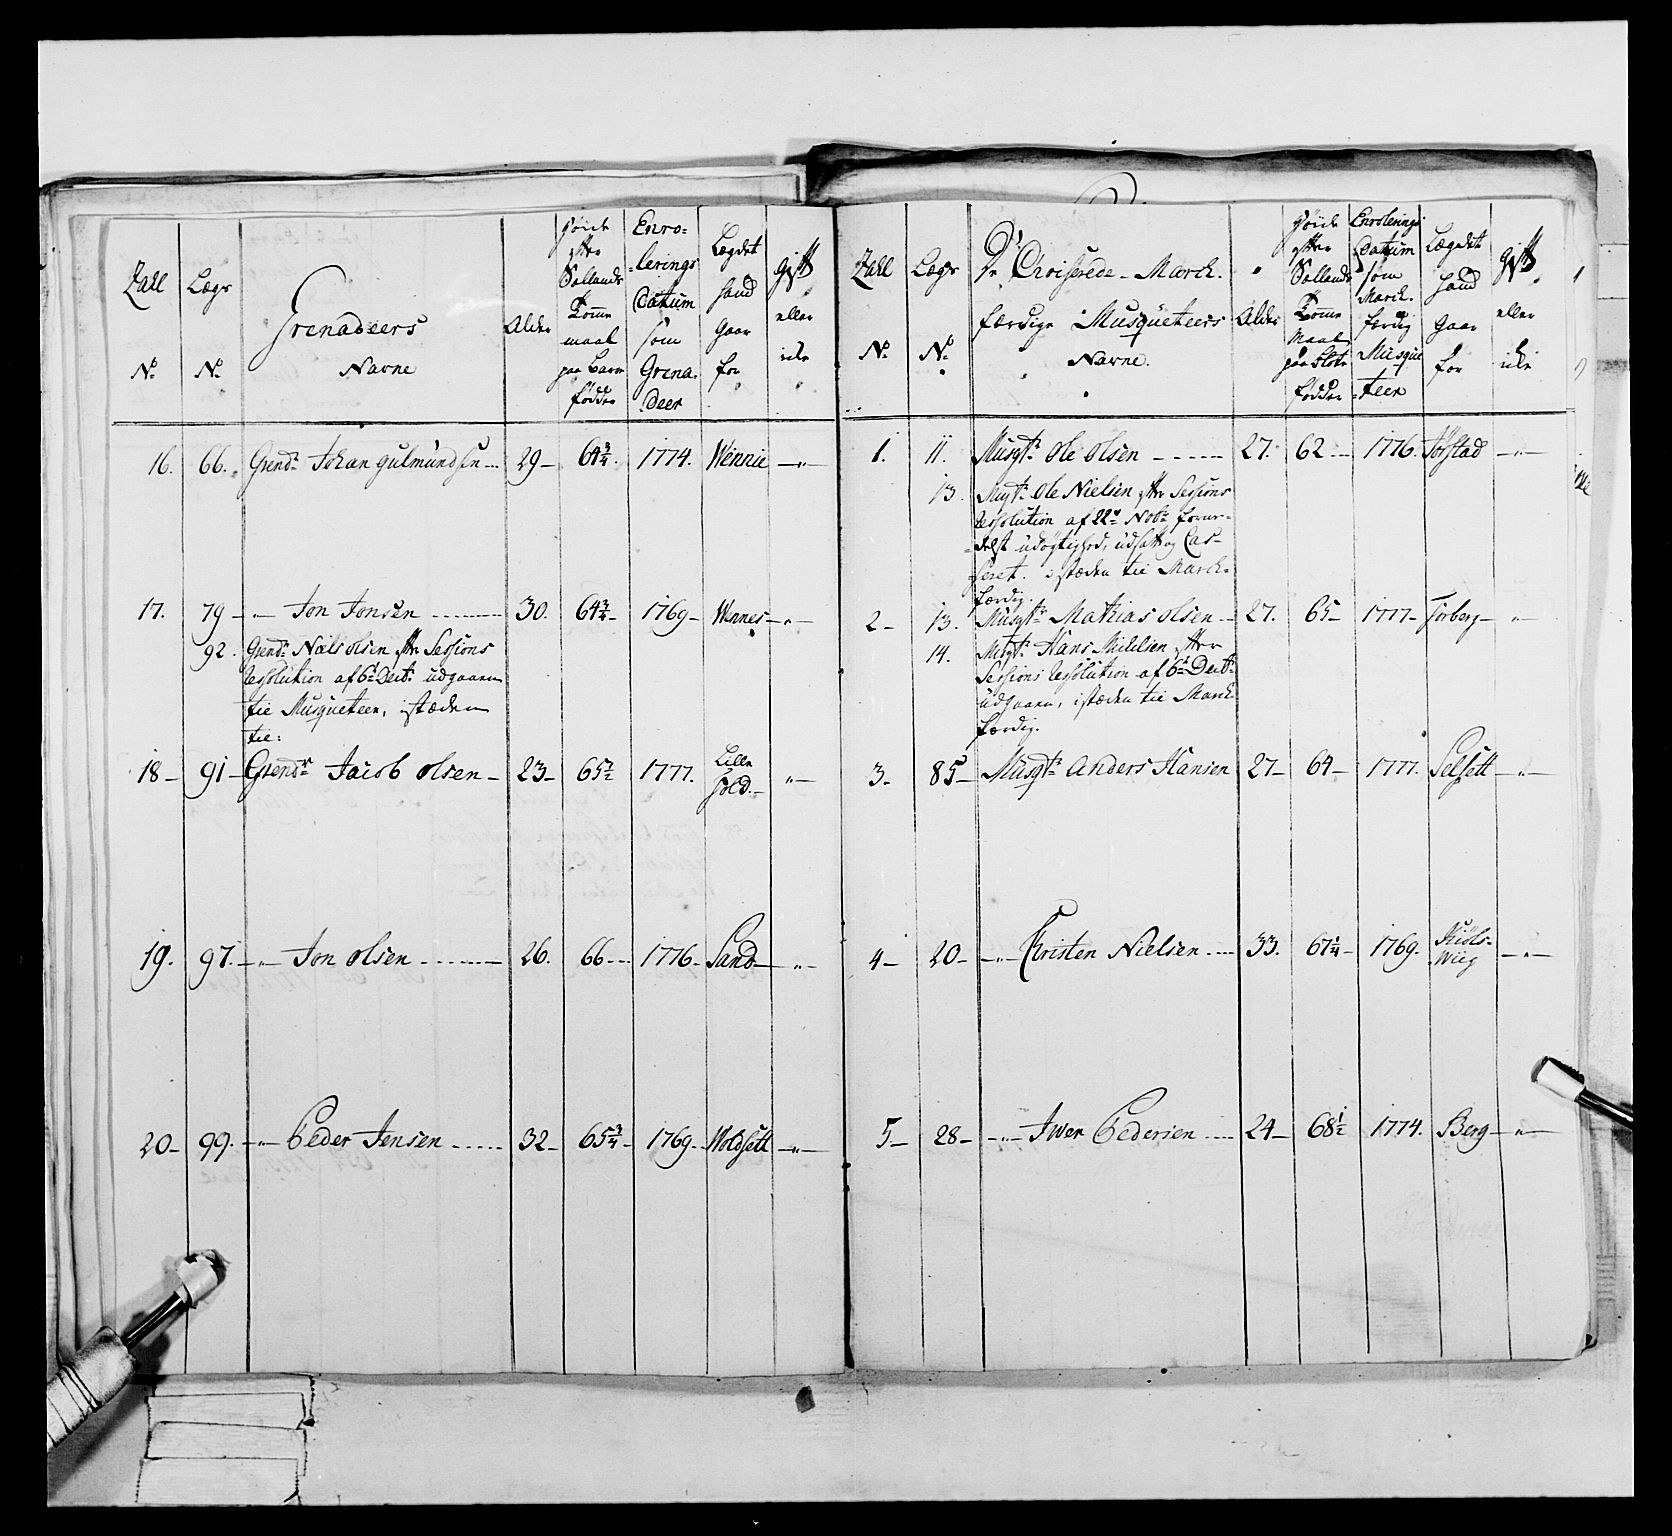 Tall
No
Lægs
No
Grenadeers
Navne
Alder
Høide
efter
Sollands
Komme
maal
paa Bare
fødder
Enro-
lerings
Datum
som
Grena-
deer
Lægdet
hand
gaar
for
Gift
eller
icke
16. 66. Grendr Johan Gulmundsen 29 64 3/4 1774. Wennie
17. 79 Jon Jonsen 30. 64 3/4 1769 Wennes
92. Grendr Niels Olsen efter Sessions
Resolution af 6te Decbr udgaaen
til Musqueteer, istæden
til:
18 91 Grendr Jacob Olsen 23 65 1/2 1777. Lille Hold.
19. 97. Jon Olsen 26. 66 1776 Sand
20 99. Peder Jensen 32 65 3/4 1769 Woldsett
Tall
No
Lægs
No
De Croiserede March-
færdige Musqueteers
Navne.
Alder
Høide
efter
Sollands
Komme
Maal
paa blote
fødder
Enrolerings
Datum
som
March-
færdig
Musque
teer
Lægdet
hand
gaar
for
Gift
eller
icke
1. 11. Musqtr Ole Olsen 27. 62 1776. Jørstad
13. Musqtr Ole Nielsen efter Sessions
Resolution af 22de Nobr formedelst
udygtighed, udsatt og Cas-
seret. istæden til March-
færdig.
2 13. Musqtr Mathias Olsen 27. 65 1777 Torberg
14. Musqtr Hans Mikkelsen efter
Sessions Resolution af 6te Decbr
udgaaen, istæden til March
færdig.
3 85 Musqtr Anders Hansen 27 64 1777. Selsett
4 20 Christen Nielsen 33. 67 1/4 1769. Kiøls-
Wiig
5 28 Iwer Pedersen 24 68 1/2 1774. Berg